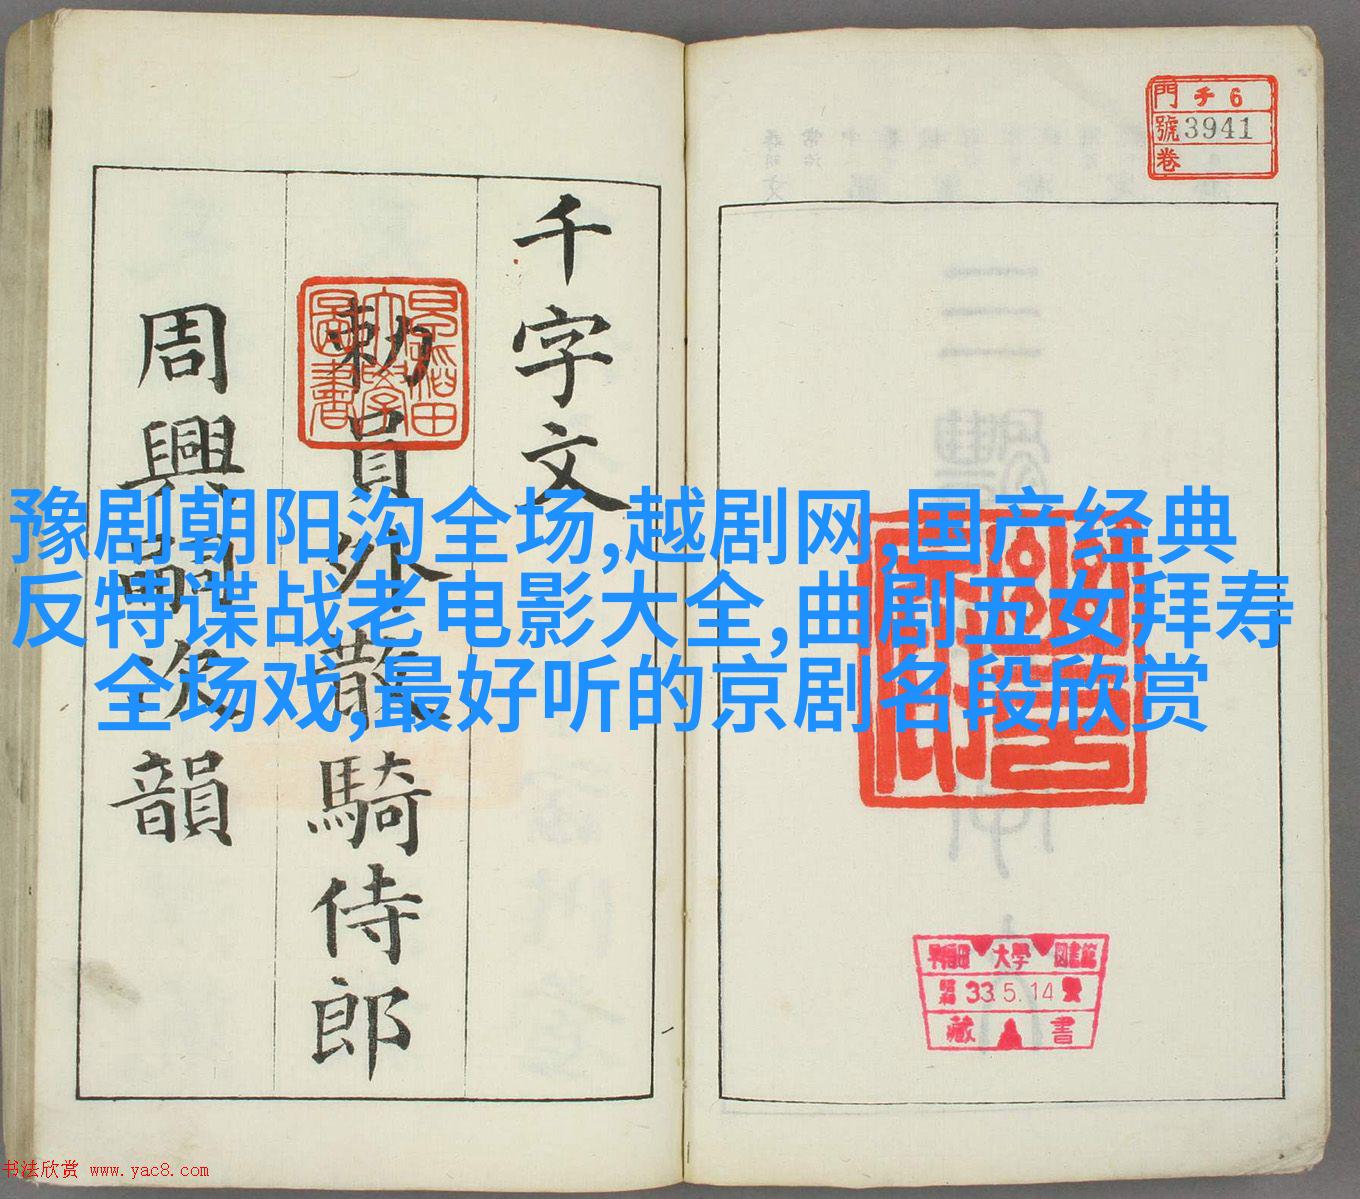 門 チ 6
號 3941
卷
千字文
勅員外散騎侍郎
周興嗣次韻
早稲田大學圖書
豫剧朝阳沟全场,越剧网,国产经典
反特谍战老电影大全,曲剧五女拜寿
全场戏,最好听的京剧名段欣赏
大學
33.5.14
藏書
书法欣赏 www.yac8.com